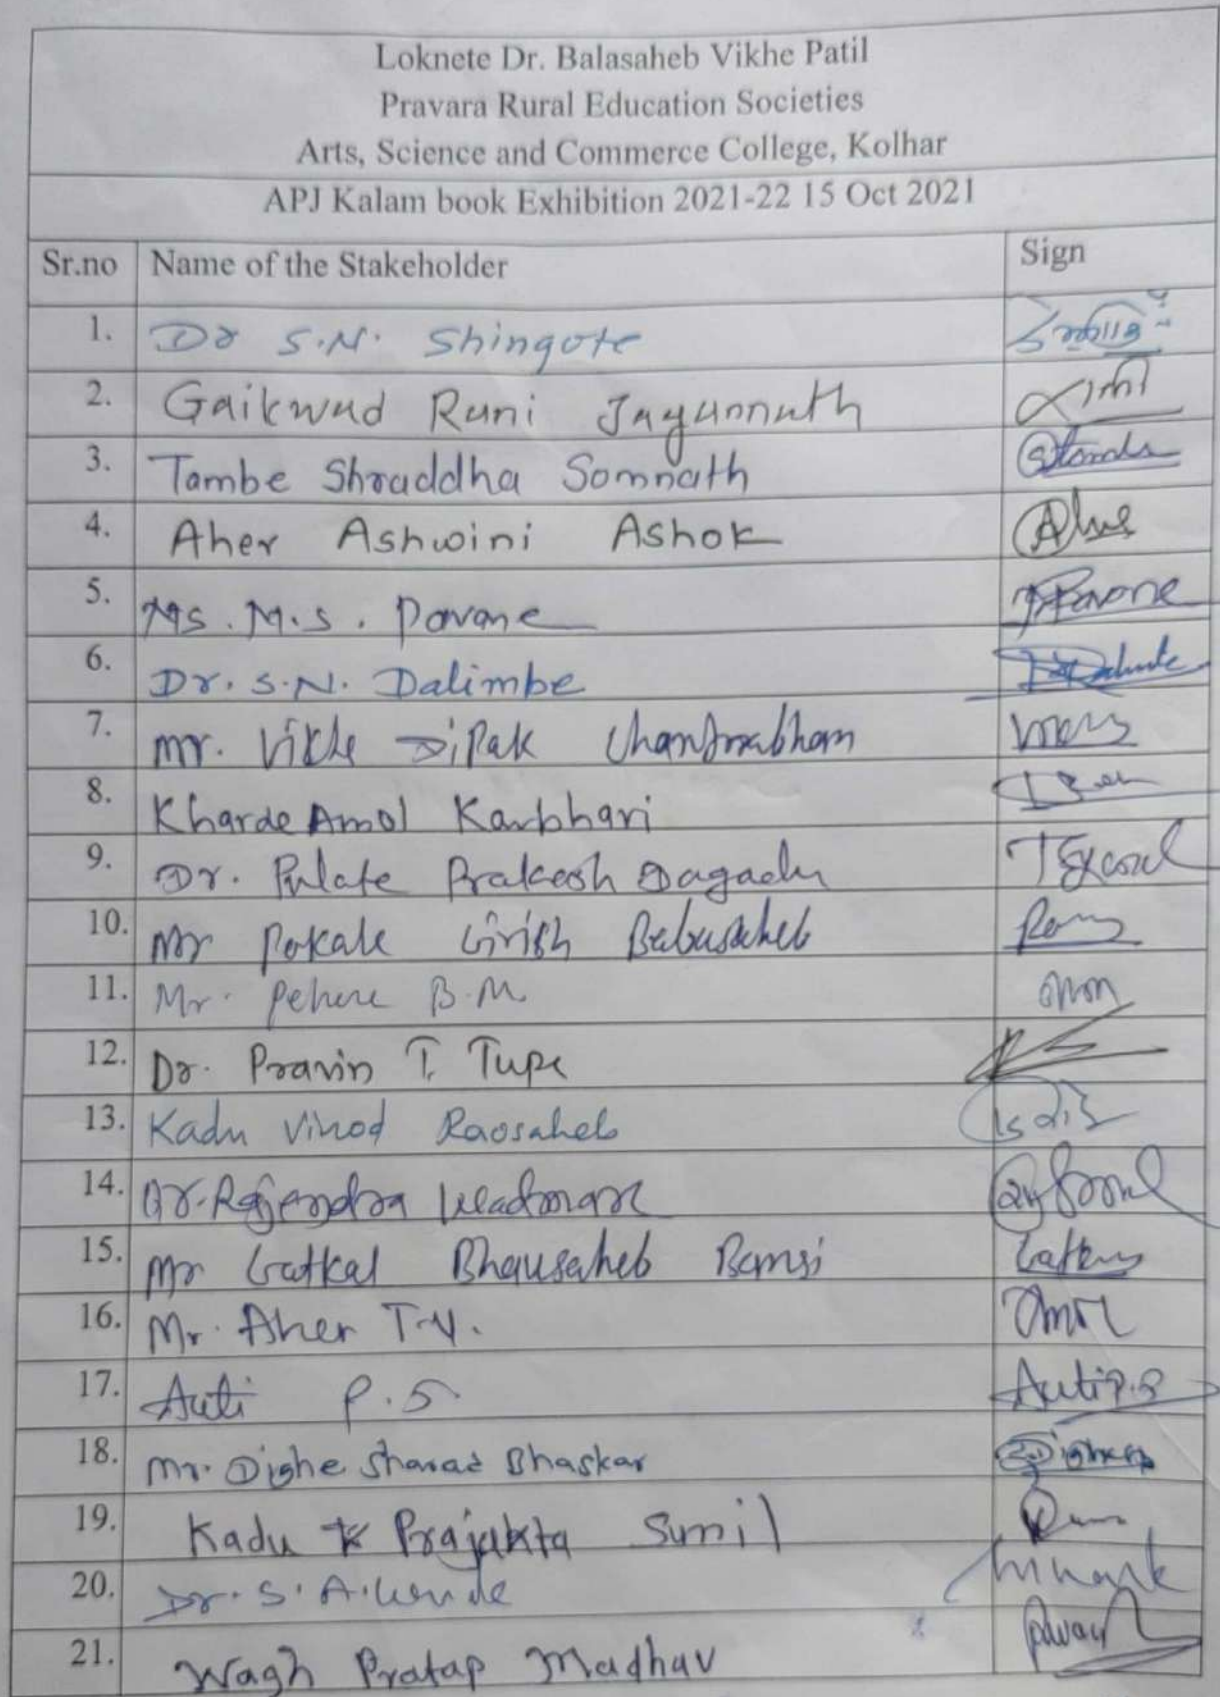 Loknete Dr. Balasaheb Vikhe Patil
Pravara Rural Education Societies
Arts, Science and Commerce College, Kolhar
APJ Kalam book Exhibition 2021-22 15 Oct 2021
Sr.no Name of the Stakeholder Sign
1. Dr S.N. Shingote
2. Gaikwad Rani Jagannath
3. Tambe Shraddha Somnath
4. Aher Ashwini Ashok
5. Ms. M.S. Pavane
6. Dr. S.N. Dalimbe
7. Mr. Vikhe Dipak Chandrabhan
8. Kharde Amol Karbhari
9. Dr. Pulate Prakash Dagadu
10. Mr Pokale Girish Babusaheb
11. Mr. Pehere B.M.
12. Dr. Pravin T. Tupe
13. Kadu Vinod Raosaheb
14. Dr. Rajendra Wadmare
15. Mr Gatkal Bhausaheb Bansi
16. Mr. Aher T.N.
17. Auti P.S. Auti P.S
18. Mr. Dighe Sharad Bhaskar
19. Kadu Prajakta Sunil
20. Dr. S. A.
21. Wagh Pratap Madhav